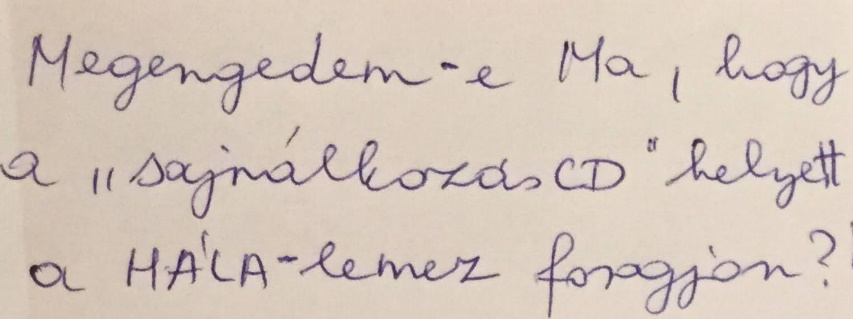 Megengedem-e Ma, hogy
a „sajnálkozás CD" helyett
a HÁLA-lemez forogjon?